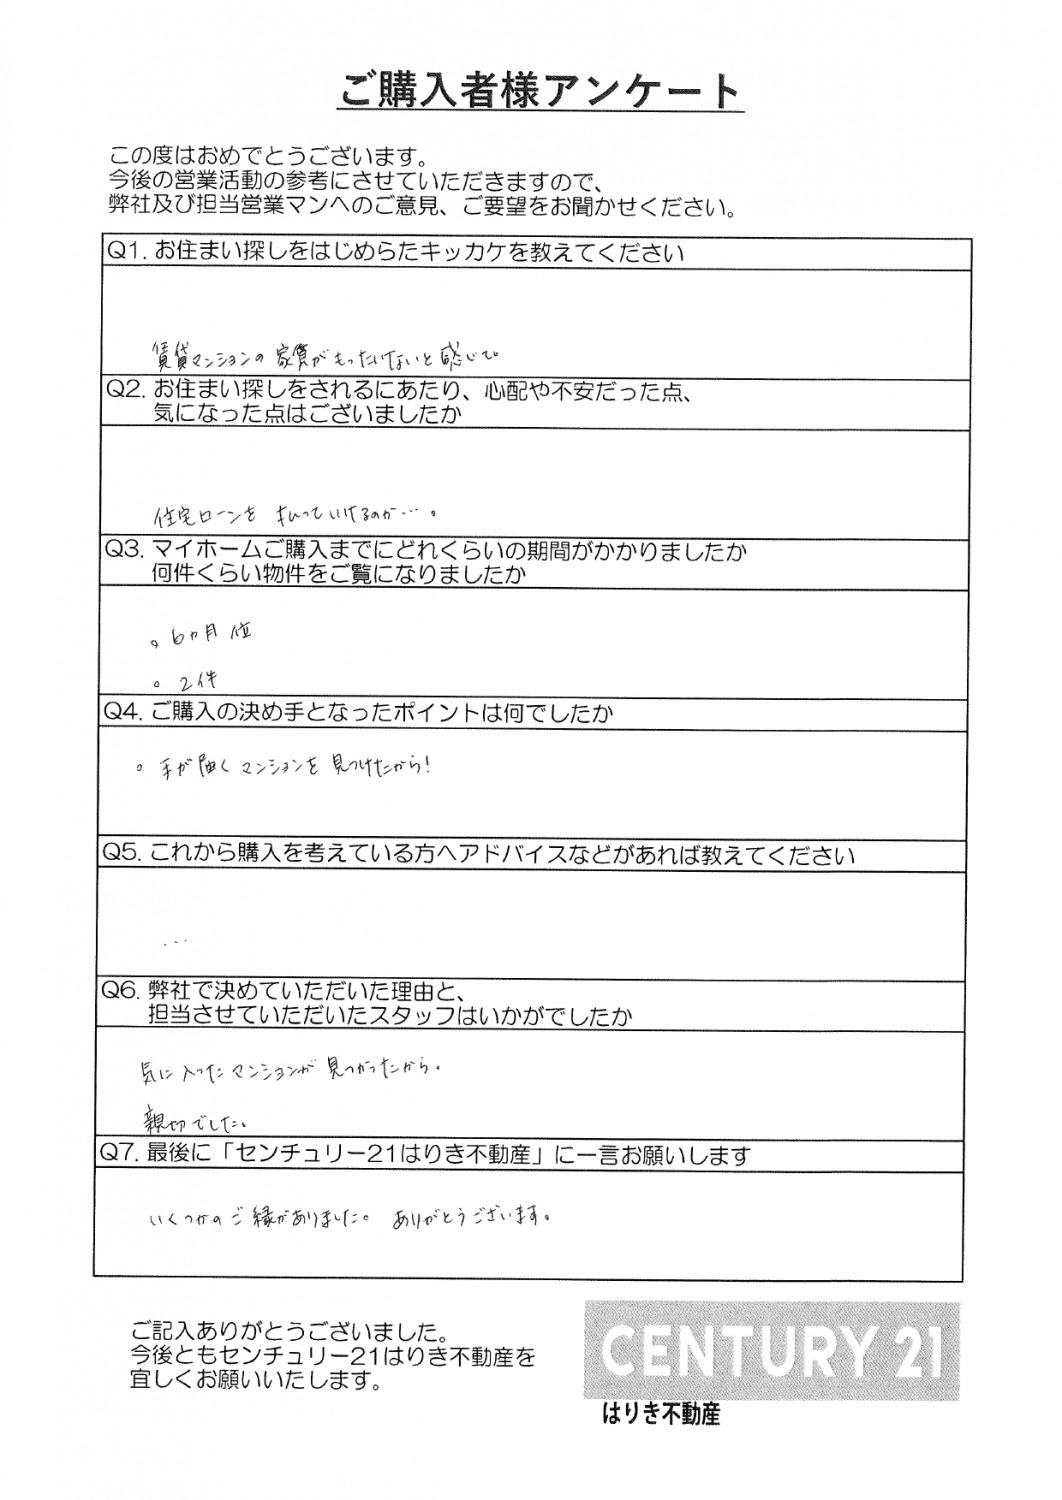 ご購入者様アンケート
この度はおめでとうございます。
今後の営業活動の参考にさせていただきますので、
弊社及び担当営業マンへのご意見、ご要望をお聞かせください。
Q1. お住まい探しをはじめらたキッカケを教えてください
賃貸マンションの 家賃がもったいないと感じて。
Q2. お住まい探しをされるにあたり、心配や不安だった点、
気になった点はございましたか
住宅ローンを 払っていけるのか…。
Q3. マイホームご購入までにどれくらいの期間がかかりましたか
何件くらい物件をご覧になりましたか
。6ヵ月 位
。2件
Q4. ご購入の決め手となったポイントは何でしたか
。手が届く マンションを 見つけたから!
Q5. これから購入を考えている方へアドバイスなどがあれば教えてください
...
Q6. 弊社で決めていただいた理由と、
担当させていただいたスタッフはいかがでしたか
気に入ったマンションが 見つかったから。
親切でした。
Q7. 最後に「センチュリー21はりき不動産」に一言お願いします
いくつかのご縁がありました。 ありがとうございます。
ご記入ありがとうございました。
今後ともセンチュリー21はりき不動産を
宜しくお願いいたします。
CENTURY 21
はりき不動産